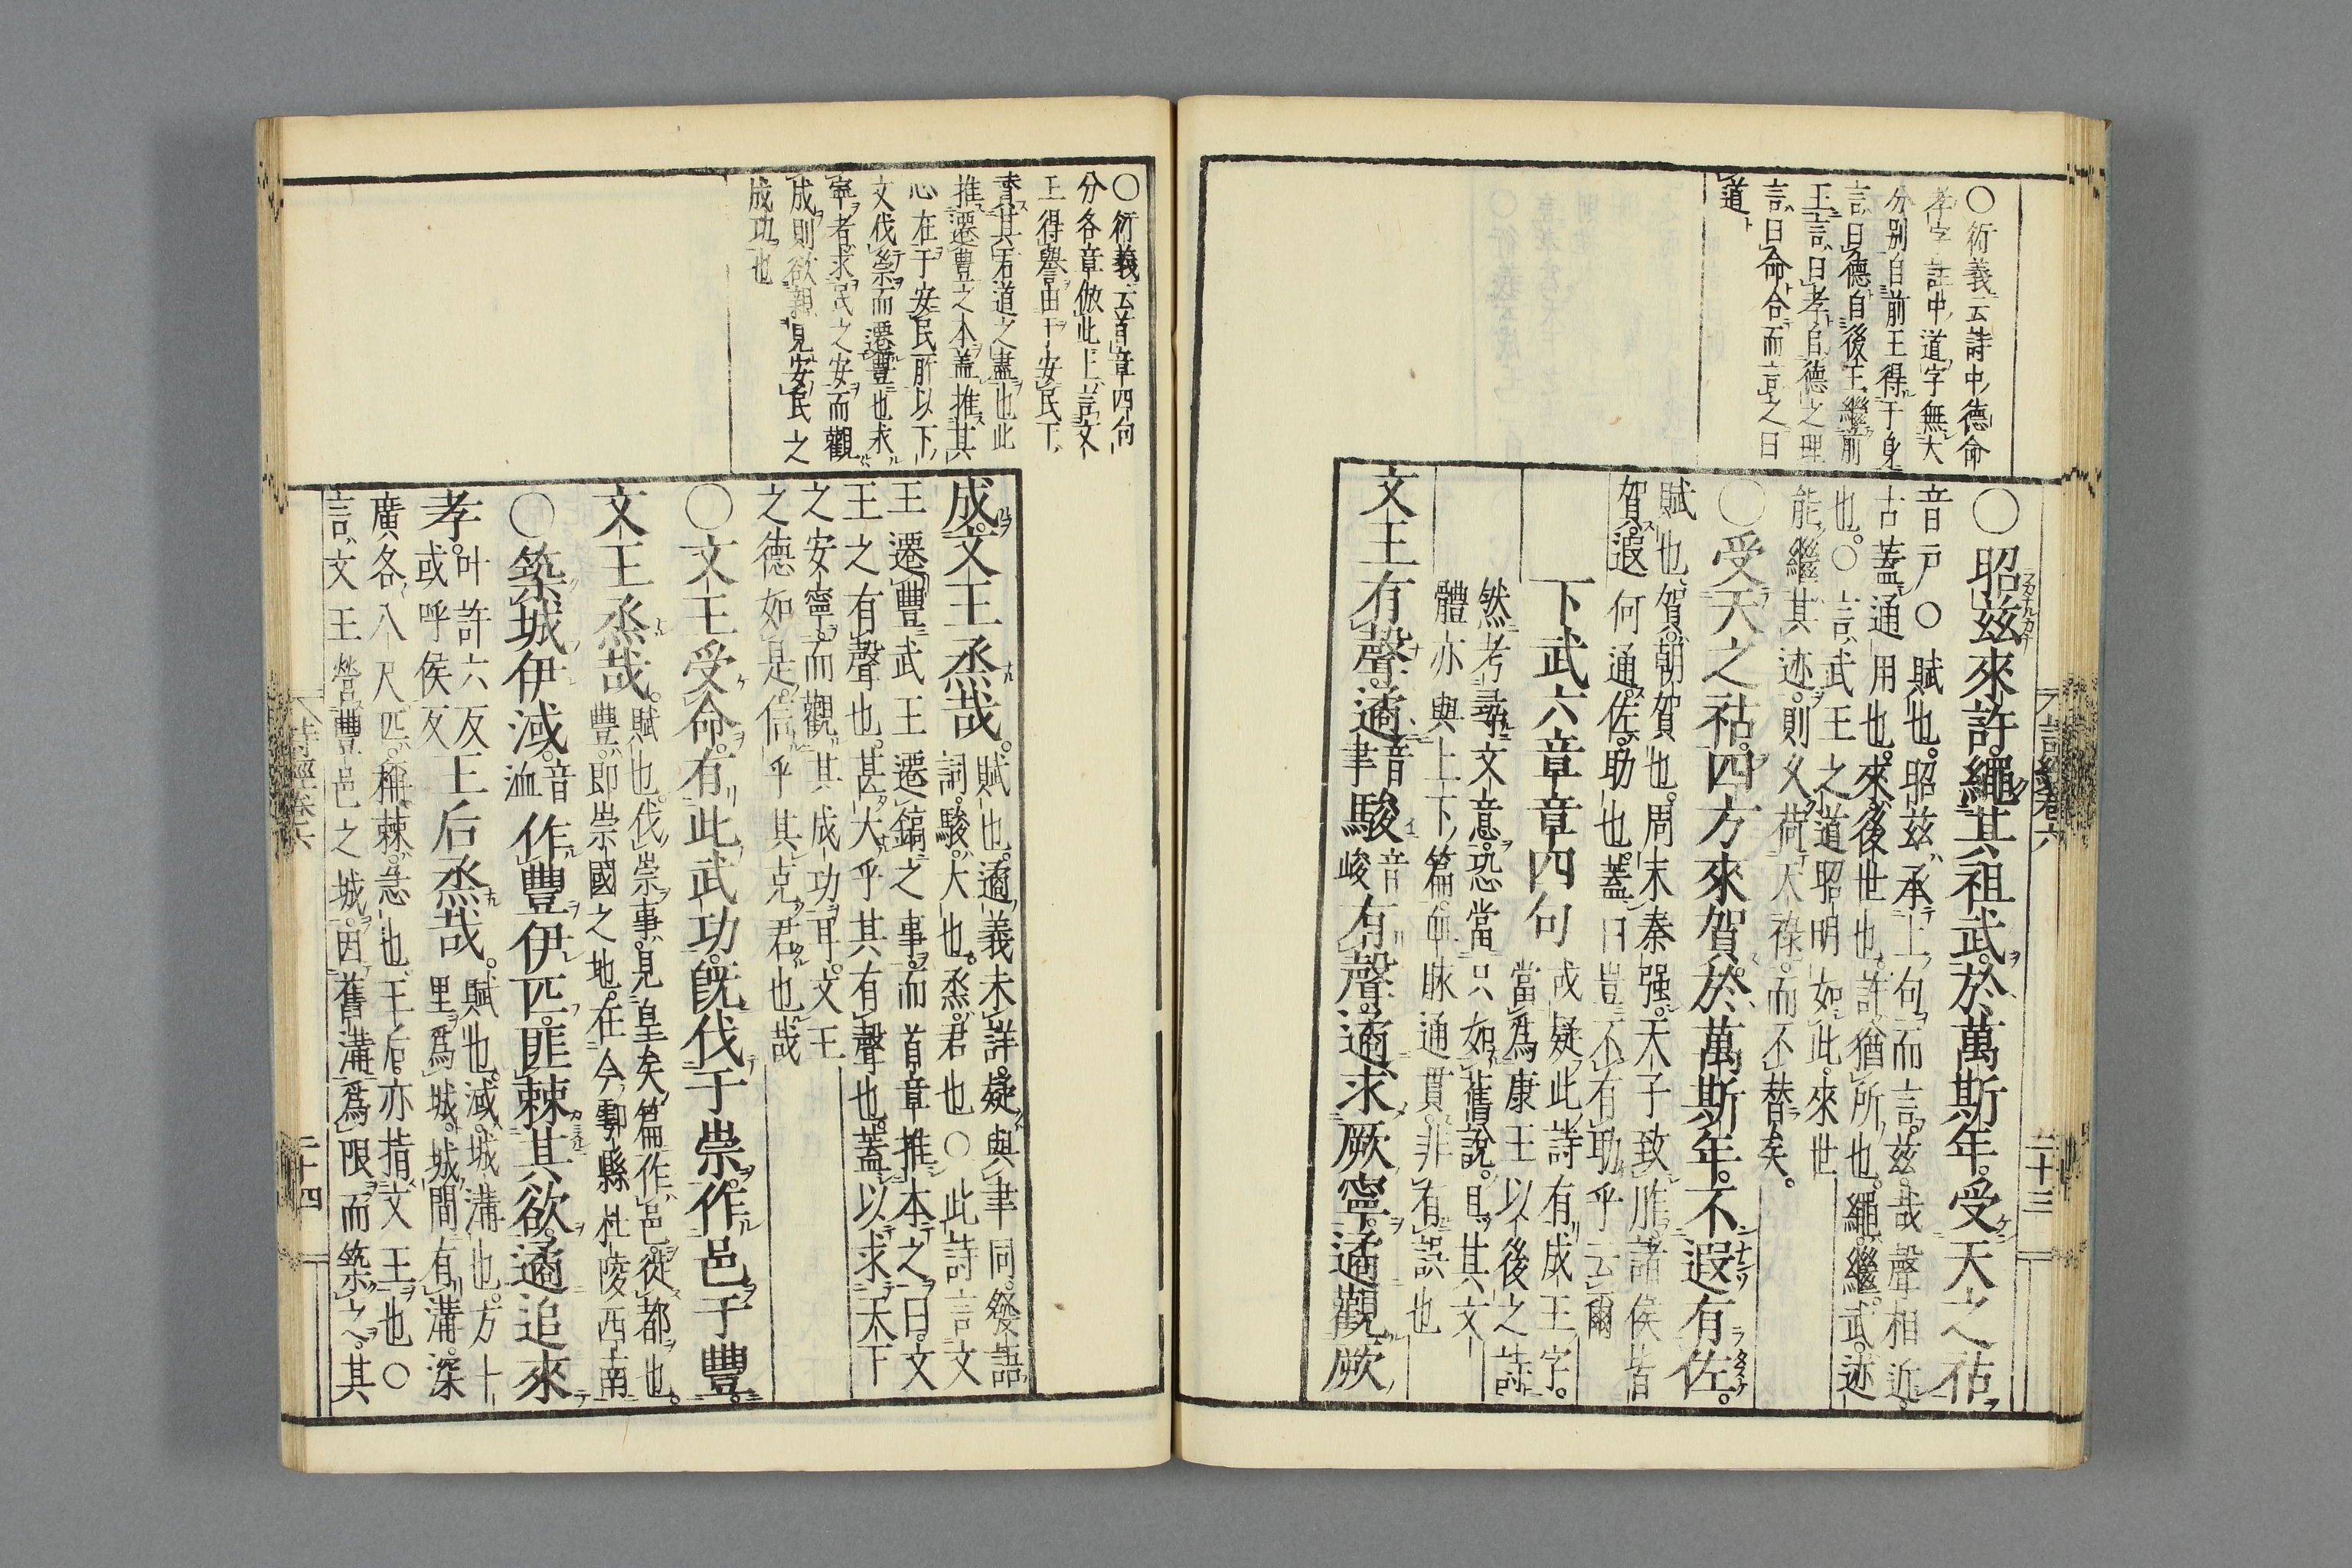 ○衍義云詩中德命
孝字註中道字無大
分別自前王得于身
言曰德自後王繼前
王言曰孝自德之理
言曰命合而言之曰
道
詩經卷六
二十三
○昭茲來許繩其祖武於萬斯年受天之祜
音戸○賦也昭茲承上句而言茲哉聲相近
古蓋通用也來後世也許猶所也繩繼武迹
也○言武王之道昭明如此來世
能繼其迹則久荷天祿而不替矣
○受天之祜四方來賀於萬斯年不遐有佐
賦也賀朝賀也周末秦强天子致胙諸侯皆
賀遐何通佐助也蓋曰豈不有助乎云爾
下武六章章四句
或疑此詩有成王字
當爲康王以後之詩
然考尋文意恐當只如舊說且其文
體亦與上下篇血脉通貫非有誤也
文王有聲遹音聿駿音峻有聲遹求厥寧遹觀厥
○衍義云首章四句
分各章倣此上言文
王得譽由于安民下
賛其君道之盡也此
推遷豐之本蓋推其
心在于安民所以下
文伐崇而遷豐也求
寧者求民之安而觀
成則欲親見安民之
成功也
成文王烝哉
賦也遹義未詳疑與聿同發語
詞駿大也烝君也○此詩言文
王遷豐武王遷鎬之事而首章推本之曰文
王之有聲也甚大乎其有聲也蓋以求天下
之安寧而觀其成功耳文王
之德如是信乎其克君也哉
○文王受命有此武功旣伐于崇作邑于豐
文王烝哉
賦也伐崇事見皇矣篇作邑徙都也
豐即崇國之地在今鄠縣杜陵西南
○築城伊淢音洫作豐伊匹匪棘其欲遹追來
孝叶許六反或呼侯反王后烝哉
賦也淢城溝也方十
里爲城城間有溝深
廣各八尺匹稱棘急也王后亦指文王也○
言文王營豐邑之城因舊溝爲限而築之其
詩經卷六
二十四